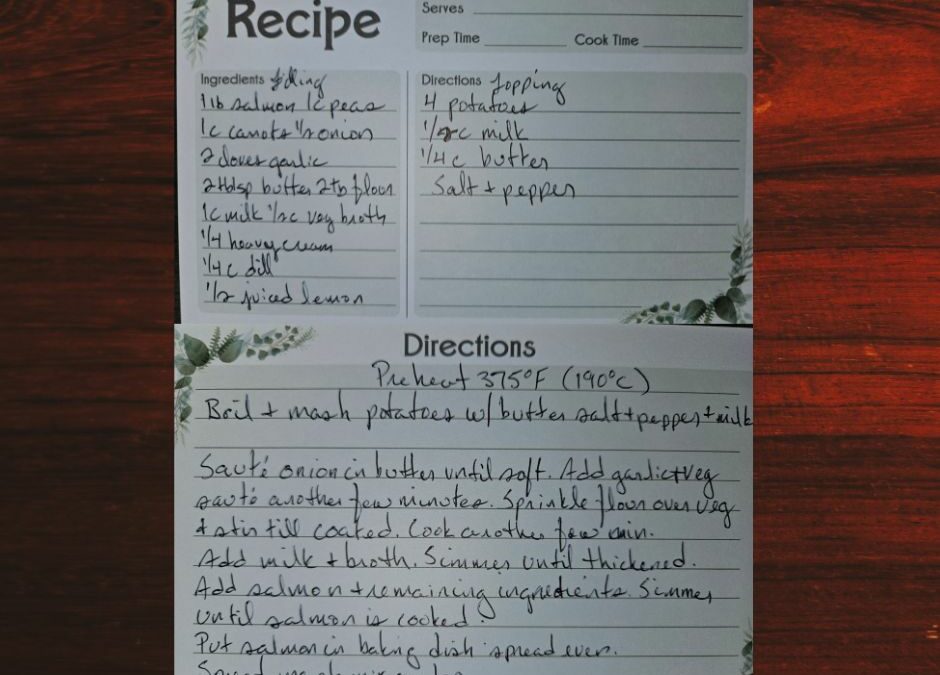 Recipe
Serves
Prep Time
Cook Time
Ingredients filling
1 lb salmon 1c peas
1c carrots 1/2 onion
2 cloves garlic
2 tblsp butter 2 tb flour
1c milk 1/2c veg broth
1/4 heavy cream
1/4 c dill
1/2 juiced lemon
Directions Topping
4 potatoes
1/2c milk
1/4 c butter
Salt + pepper
Directions
Preheat 375°F (190°C)
Boil + mash potatoes w/ butter salt + pepper + milk
Sauté onion in butter until soft. Add garlic + veg
sauté another few minutes. Sprinkle flour over veg
+ stir till coated. Cook another few min.
Add milk + broth. Simmer until thickened.
Add salmon + remaining ingredients. Simmer
until salmon is cooked.
Put salmon in baking dish spread even.